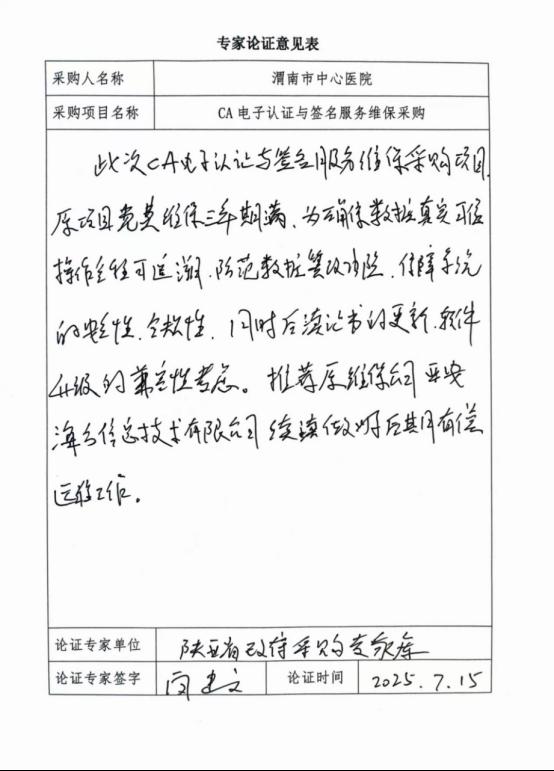 专家论证意见表
采购人名称 渭南市中心医院
采购项目名称 CA 电子认证与签名服务维保采购
此次CA电子认证与签名服务维保采购项目,
原项目免费维保三年期满、为确保数据真实可信
操作全程可追溯、防范数据篡改风险、保障系统
的安全性、合规性、同时后续证书的更新、软件
升级的兼容性考虑。推荐原维保公司西安
海云信息技术有限公司 续续做好后期有偿
运维工作。
论证专家单位 陕西省政府采购专家库
论证专家签字 闵建文 论证时间 2025.7.15